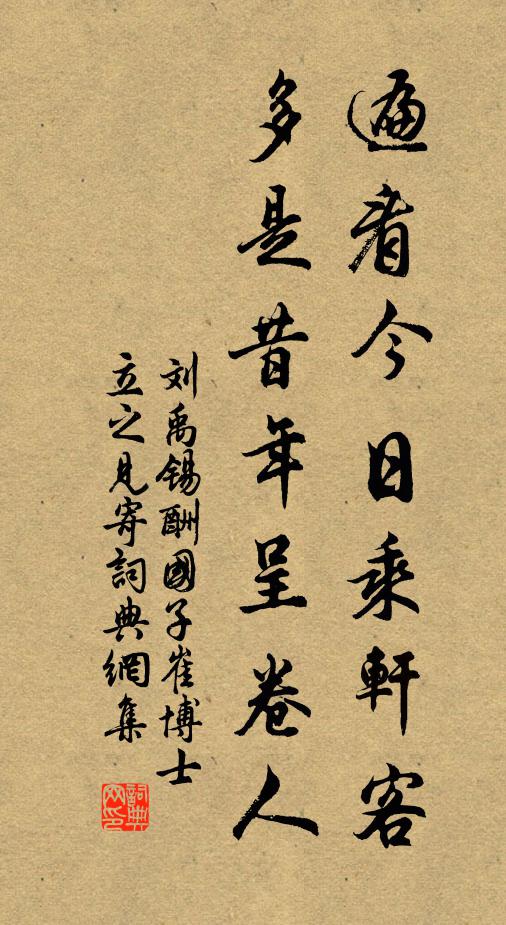 遍看今日乘軒客
多是昔年呈卷人
刘禹锡酬國子崔博士
立之見寄詞典網集
詞典網印